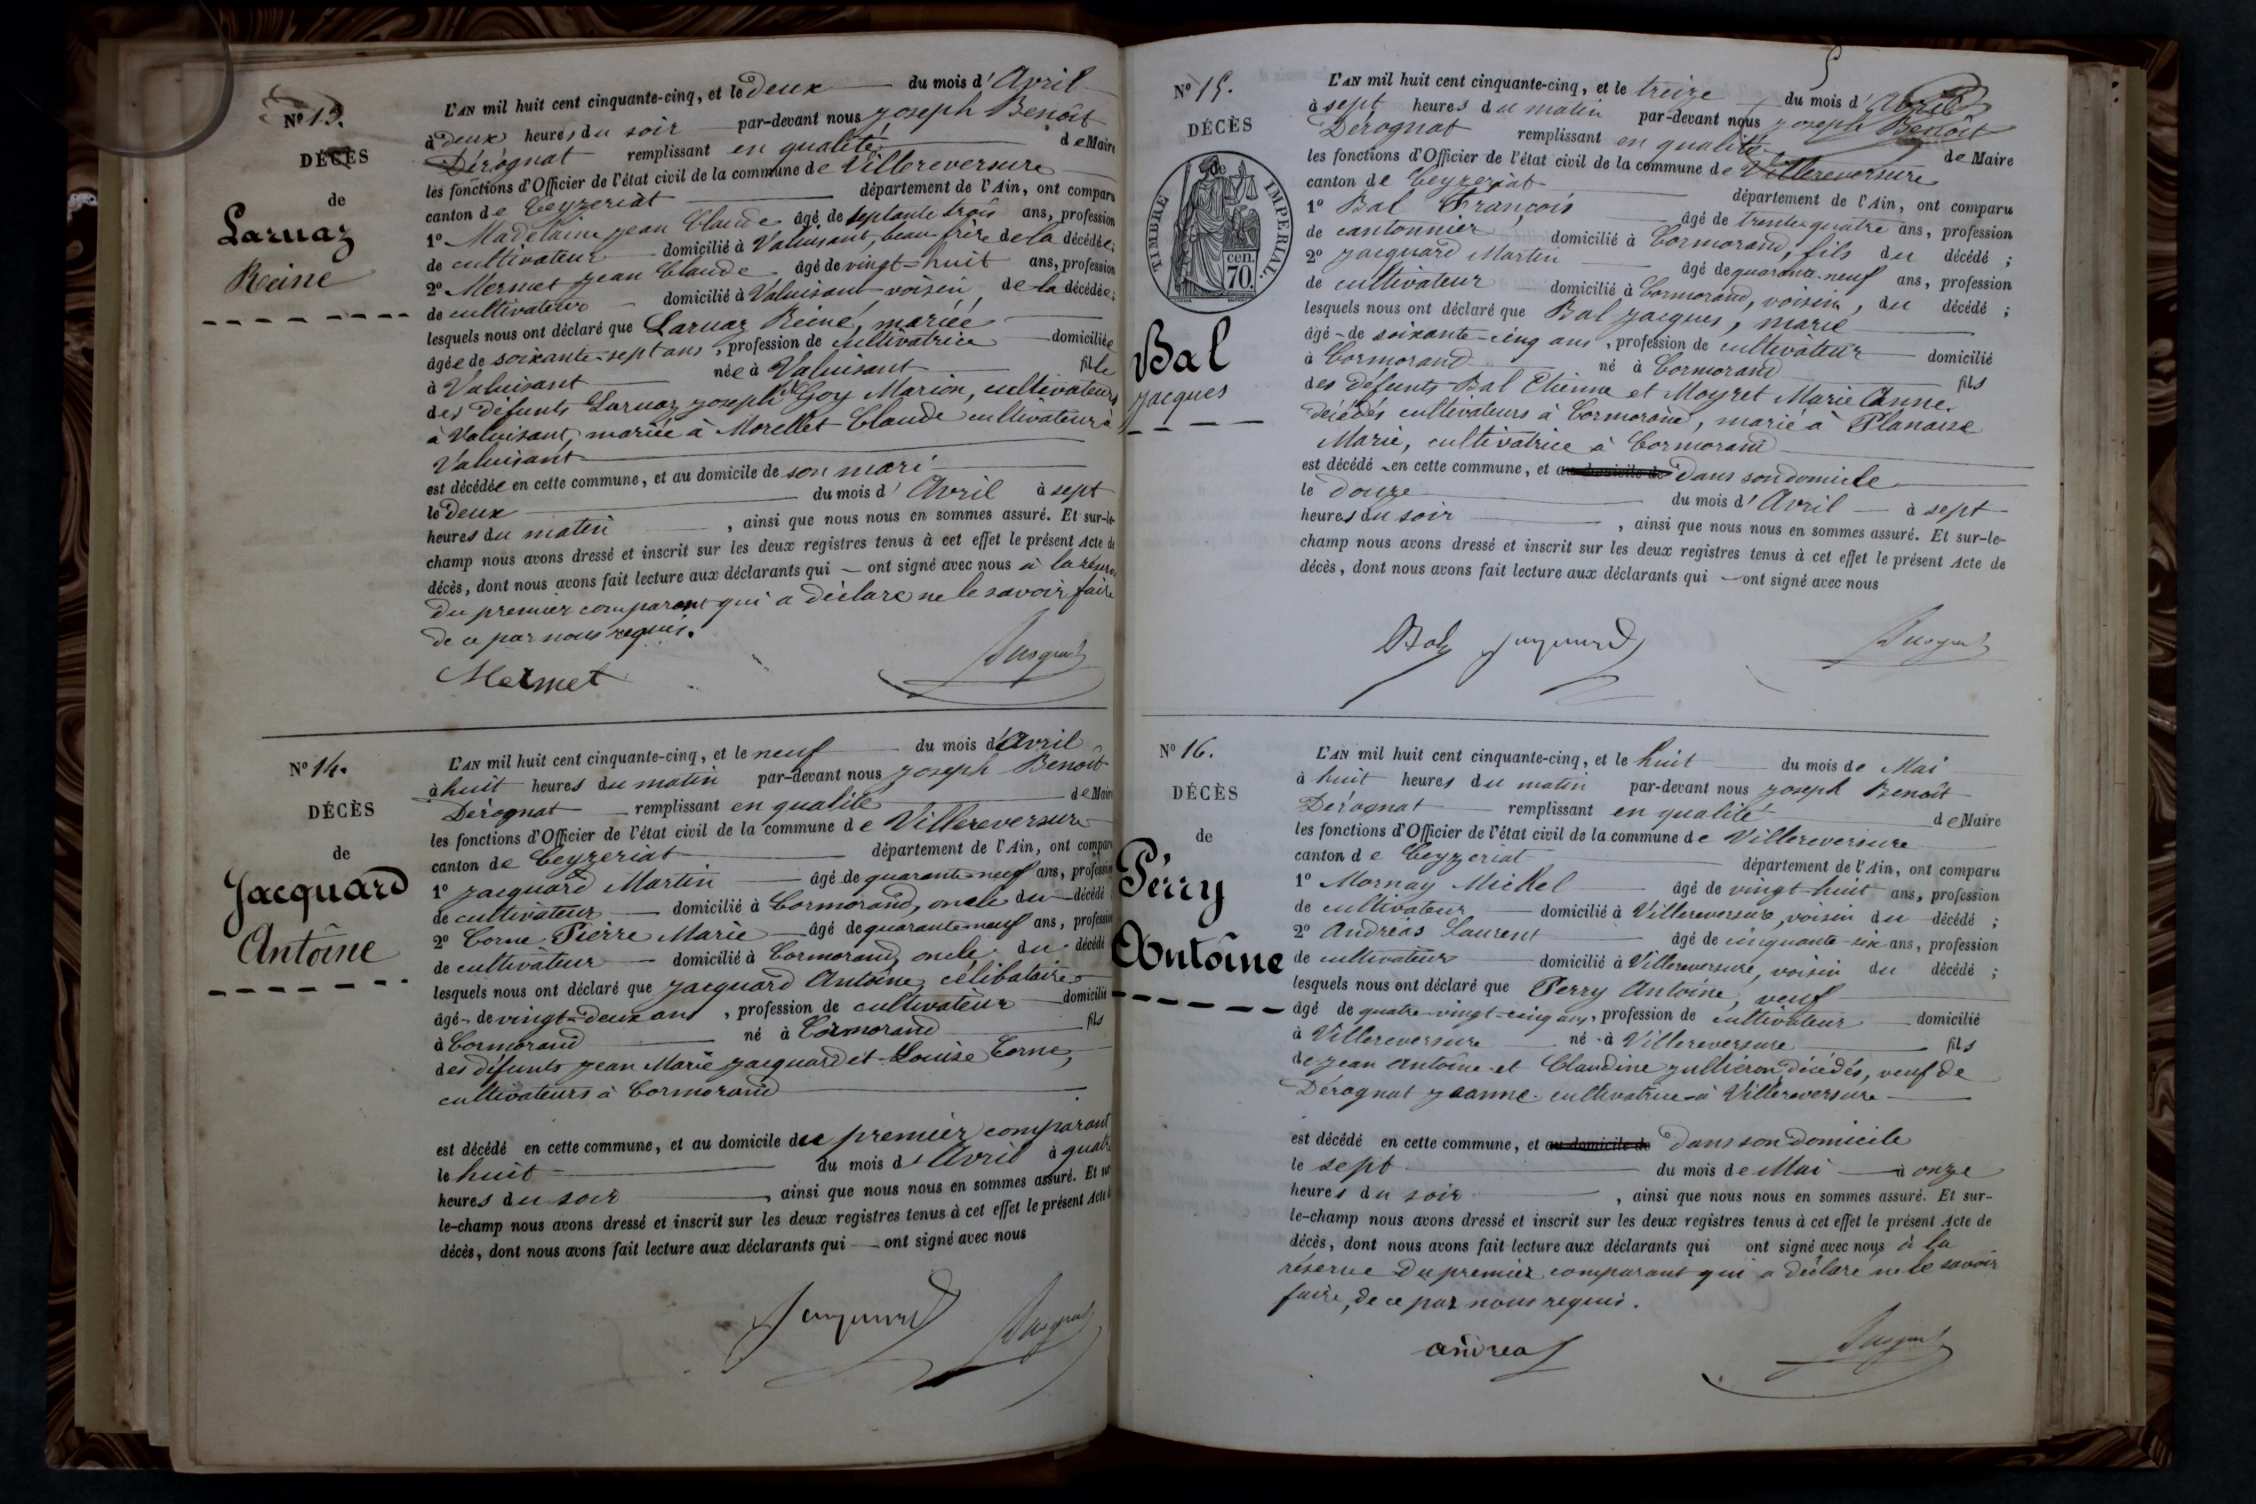 Nº 13.
DÉCÈS
de
Laruaz
Reine
L'AN mil huit cent cinquante-cinq, et le deux du mois d'Avril
à deux heures du soir par-devant nous Joseph Benoît
Dérognat remplissant en qualité de Maire
les fonctions d'Officier de l'état civil de la commune de Villereversure
canton de Ceyzeriat département de l'Ain, ont comparu
1º Madelaine Jean Claude âgé de septante trois ans, profession
de cultivateur domicilié à Valuisant, beau-frère de la décédée;
2º Mermet Jean Claude âgé de vingt-huit ans, profession
de cultivateur domicilié à Valuisant voisin, de la décédée;
lesquels nous ont déclaré que Laruaz Reine, mariée
âgée de soixante-sept ans, profession de cultivatrice domiciliée
à Valuisant née à Valuisant fille
des défunts Laruaz Joseph et Goy Marion, cultivateurs
à Valuisant, mariée à Morellet Claude cultivateur à
Valuisant
est décédée en cette commune, et au domicile de son mari
le deux du mois d'Avril à sept
heures du matin, ainsi que nous nous en sommes assuré. Et sur-le-
champ nous avons dressé et inscrit sur les deux registres tenus à cet effet le présent Acte de
décès, dont nous avons fait lecture aux déclarants qui — ont signé avec nous à la
du premier comparant qui a déclaré ne le savoir faire
de ce par nous requis.
Mermet
Nº 14.
DÉCÈS
de
Jacquard
Antoine
L'AN mil huit cent cinquante-cinq, et le neuf du mois d'Avril
à huit heures du matin par-devant nous Joseph Benoît
Dérognat remplissant en qualité de Maire
les fonctions d'Officier de l'état civil de la commune de Villereversure
canton de Ceyzeriat département de l'Ain, ont comparu
1º Jacquard Martin âgé de quarante-neuf ans, profession
de cultivateur domicilié à Cormorand, oncle du décédé
2º Corne Pierre Marie âgé de quarante-neuf ans, profession
de cultivateur domicilié à Cormorand, oncle, du décédé
lesquels nous ont déclaré que Jacquard Antoine, célibataire
âgé de vingt-deux ans, profession de cultivateur domicilié
à Cormorand né à Cormorand fils
des défunts Jean Marie Jacquard et Louise Corne,
cultivateurs à Cormorand
est décédé en cette commune, et au domicile du premier comparant
le huit du mois d'Avril à quatre
heures du soir, ainsi que nous nous en sommes assuré. Et sur
le-champ nous avons dressé et inscrit sur les deux registres tenus à cet effet le présent Acte de
décès, dont nous avons fait lecture aux déclarants qui — ont signé avec nous
Jacquard
5
Nº 15.
DÉCÈS
de
TIMBRE IMPÉRIAL.
70.
cen.
Bal
Jacques
L'AN mil huit cent cinquante-cinq, et le treize du mois d'Avril
à sept heures du matin par-devant nous Joseph Benoît
Dérognat remplissant en qualité de Maire
les fonctions d'Officier de l'état civil de la commune de Villereversure
canton de Ceyzeriat département de l'Ain, ont comparu
1º Bal François âgé de trente-quatre ans, profession
de cantonnier domicilié à Cormorand, fils du décédé;
2º Jacquard Martin âgé de quarante-neuf ans, profession
de cultivateur domicilié à Cormorand, voisin, du décédé;
lesquels nous ont déclaré que Bal Jacques, marié
âgé de soixante-cinq ans, profession de cultivateur domicilié
à Cormorand né à Cormorand fils
des défunts Bal Etienne et Moyret Marie Anne.
décédés cultivateurs à Cormorand, marié à Planaise
Marie, cultivatrice à Cormorand
est décédé en cette commune, et au domicile de dans son domicile
le douze du mois d'Avril à sept
heures du soir, ainsi que nous nous en sommes assuré. Et sur-le-
champ nous avons dressé et inscrit sur les deux registres tenus à cet effet le présent Acte de
décès, dont nous avons fait lecture aux déclarants qui — ont signé avec nous
Bal Jacquard
Nº 16.
DÉCÈS
de
Perry
Antoine
L'AN mil huit cent cinquante-cinq, et le huit du mois de Mai
à huit heures du matin par-devant nous Joseph Benoît
Dérognat remplissant en qualité de Maire
les fonctions d'Officier de l'état civil de la commune de Villereversure
canton de Ceyzeriat département de l'Ain, ont comparu
1º Mornay Michel âgé de vingt-huit ans, profession
de cultivateur domicilié à Villereversure, voisin du décédé;
2º Andréas Laurent âgé de cinquante-six ans, profession
de cultivateur domicilié à Villereversure, voisin du décédé;
lesquels nous ont déclaré que Perry Antoine, veuf
âgé de quatre-vingt-cinq ans, profession de cultivateur domicilié
à Villereversure né à Villereversure fils
de Jean Antoine et Claudine Jullieron décédés, veuf de
Dérognat Jeanne cultivatrice à Villereversure
est décédé en cette commune, et au domicile de dans son domicile
le sept du mois de Mai à onze
heures du soir, ainsi que nous nous en sommes assuré. Et sur-
le-champ nous avons dressé et inscrit sur les deux registres tenus à cet effet le présent Acte de
décès, dont nous avons fait lecture aux déclarants qui ont signé avec nous à la
réserve du premier comparant qui a déclaré ne le savoir
faire, de ce par nous requis.
andreas